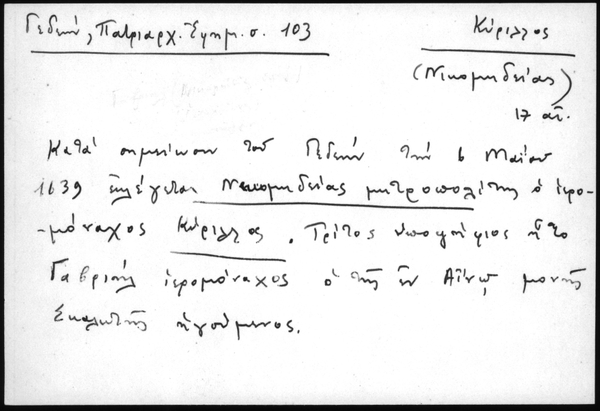 Γεδεών, Πατριαρχ. Ἐφημ. σ. 103
Κύριλλος
(Νικομηδείας)
17 αἰ.
Κατά σημείωσιν τοῦ Γεδεών τήν 6 Μαΐου
1639 ἐκλέγεται Νικομηδείας μητροπολίτης ὁ ἱερο-
-μόναχος Κύριλλος. Τρίτος ὑποψήφιος ἦτο
Γαβριήλ ἱερομόναχος ὁ τῆς ἐν Αἴνῳ μονῆς
Σκαλωτῆς ἡγούμενος.